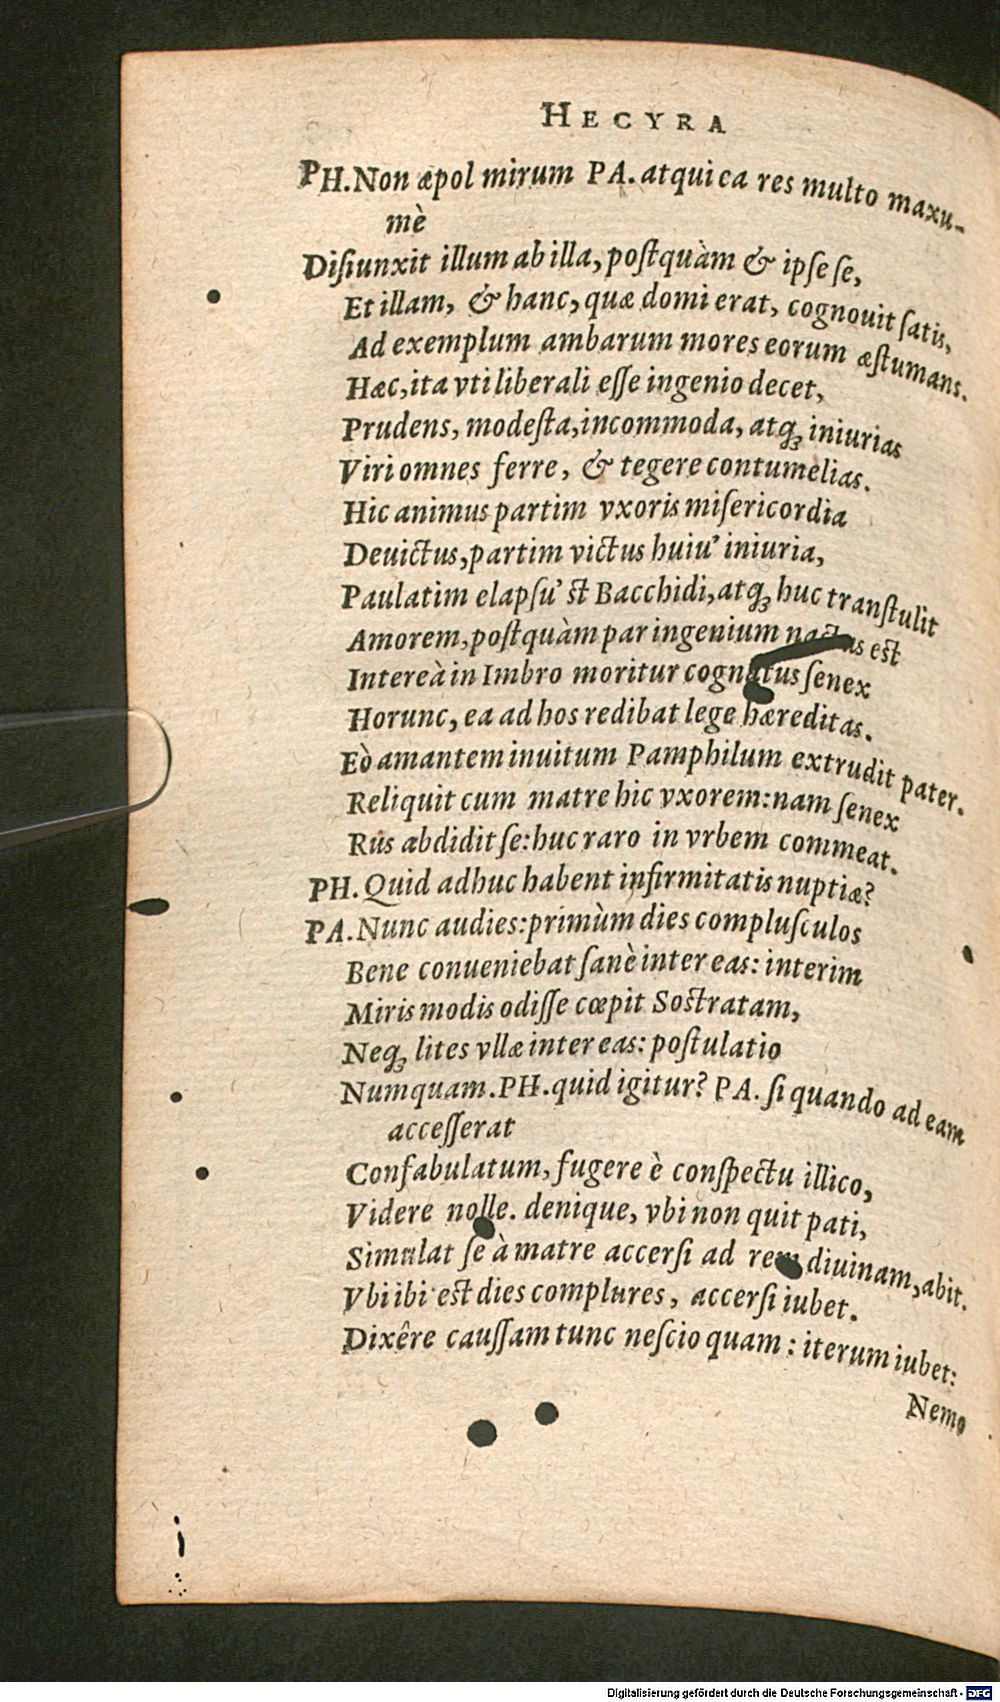 HECYRA
PH. Non æpol mirum PA. atqui ea res multo maxu-
mè
Disiunxit illum ab illa, postquàm & ipse se,
Et illam, & hanc, quæ domi erat, cognouit satis,
Ad exemplum ambarum mores eorum æstumans.
Hæc, ita vti liberali esse ingenio decet,
Prudens, modesta, incommoda, atq; iniurias
Viri omnes ferre, & tegere contumelias.
Hic animus partim vxoris misericordia
Deuictus, partim victus huiu' iniuria,
Paulatim elapsu' st Bacchidi, atq; huc transtulit
Amorem, postquàm par ingenium nactus est
Intereà in Imbro moritur cognatus senex
Horunc, ea ad hos redibat lege hæreditas.
Eò amantem inuitum Pamphilum extrudit pater.
Reliquit cum matre hic vxorem: nam senex
Rus abdidit se: huc raro in vrbem commeat.
PH. Quid adhuc habent infirmitatis nuptiæ?
PA. Nunc audies: primùm dies complusculos
Bene conueniebat sanè inter eas: interim
Miris modis odisse cœpit Sostratam,
Neq; lites vllæ inter eas: postulatio
Numquam. PH. quid igitur? PA. si quando ad eam
accesserat
Confabulatum, fugere è conspectu illico,
Videre nolle. denique, vbi non quit pati,
Simulat se à matre accersi ad rem diuinam, abit.
Vbi ibi est dies complures, accersi iubet.
Dixêre caussam tunc nescio quam: iterum iubet:
Nemo
Digitalisierung gefördert durch die Deutsche Forschungsgemeinschaft - DFG